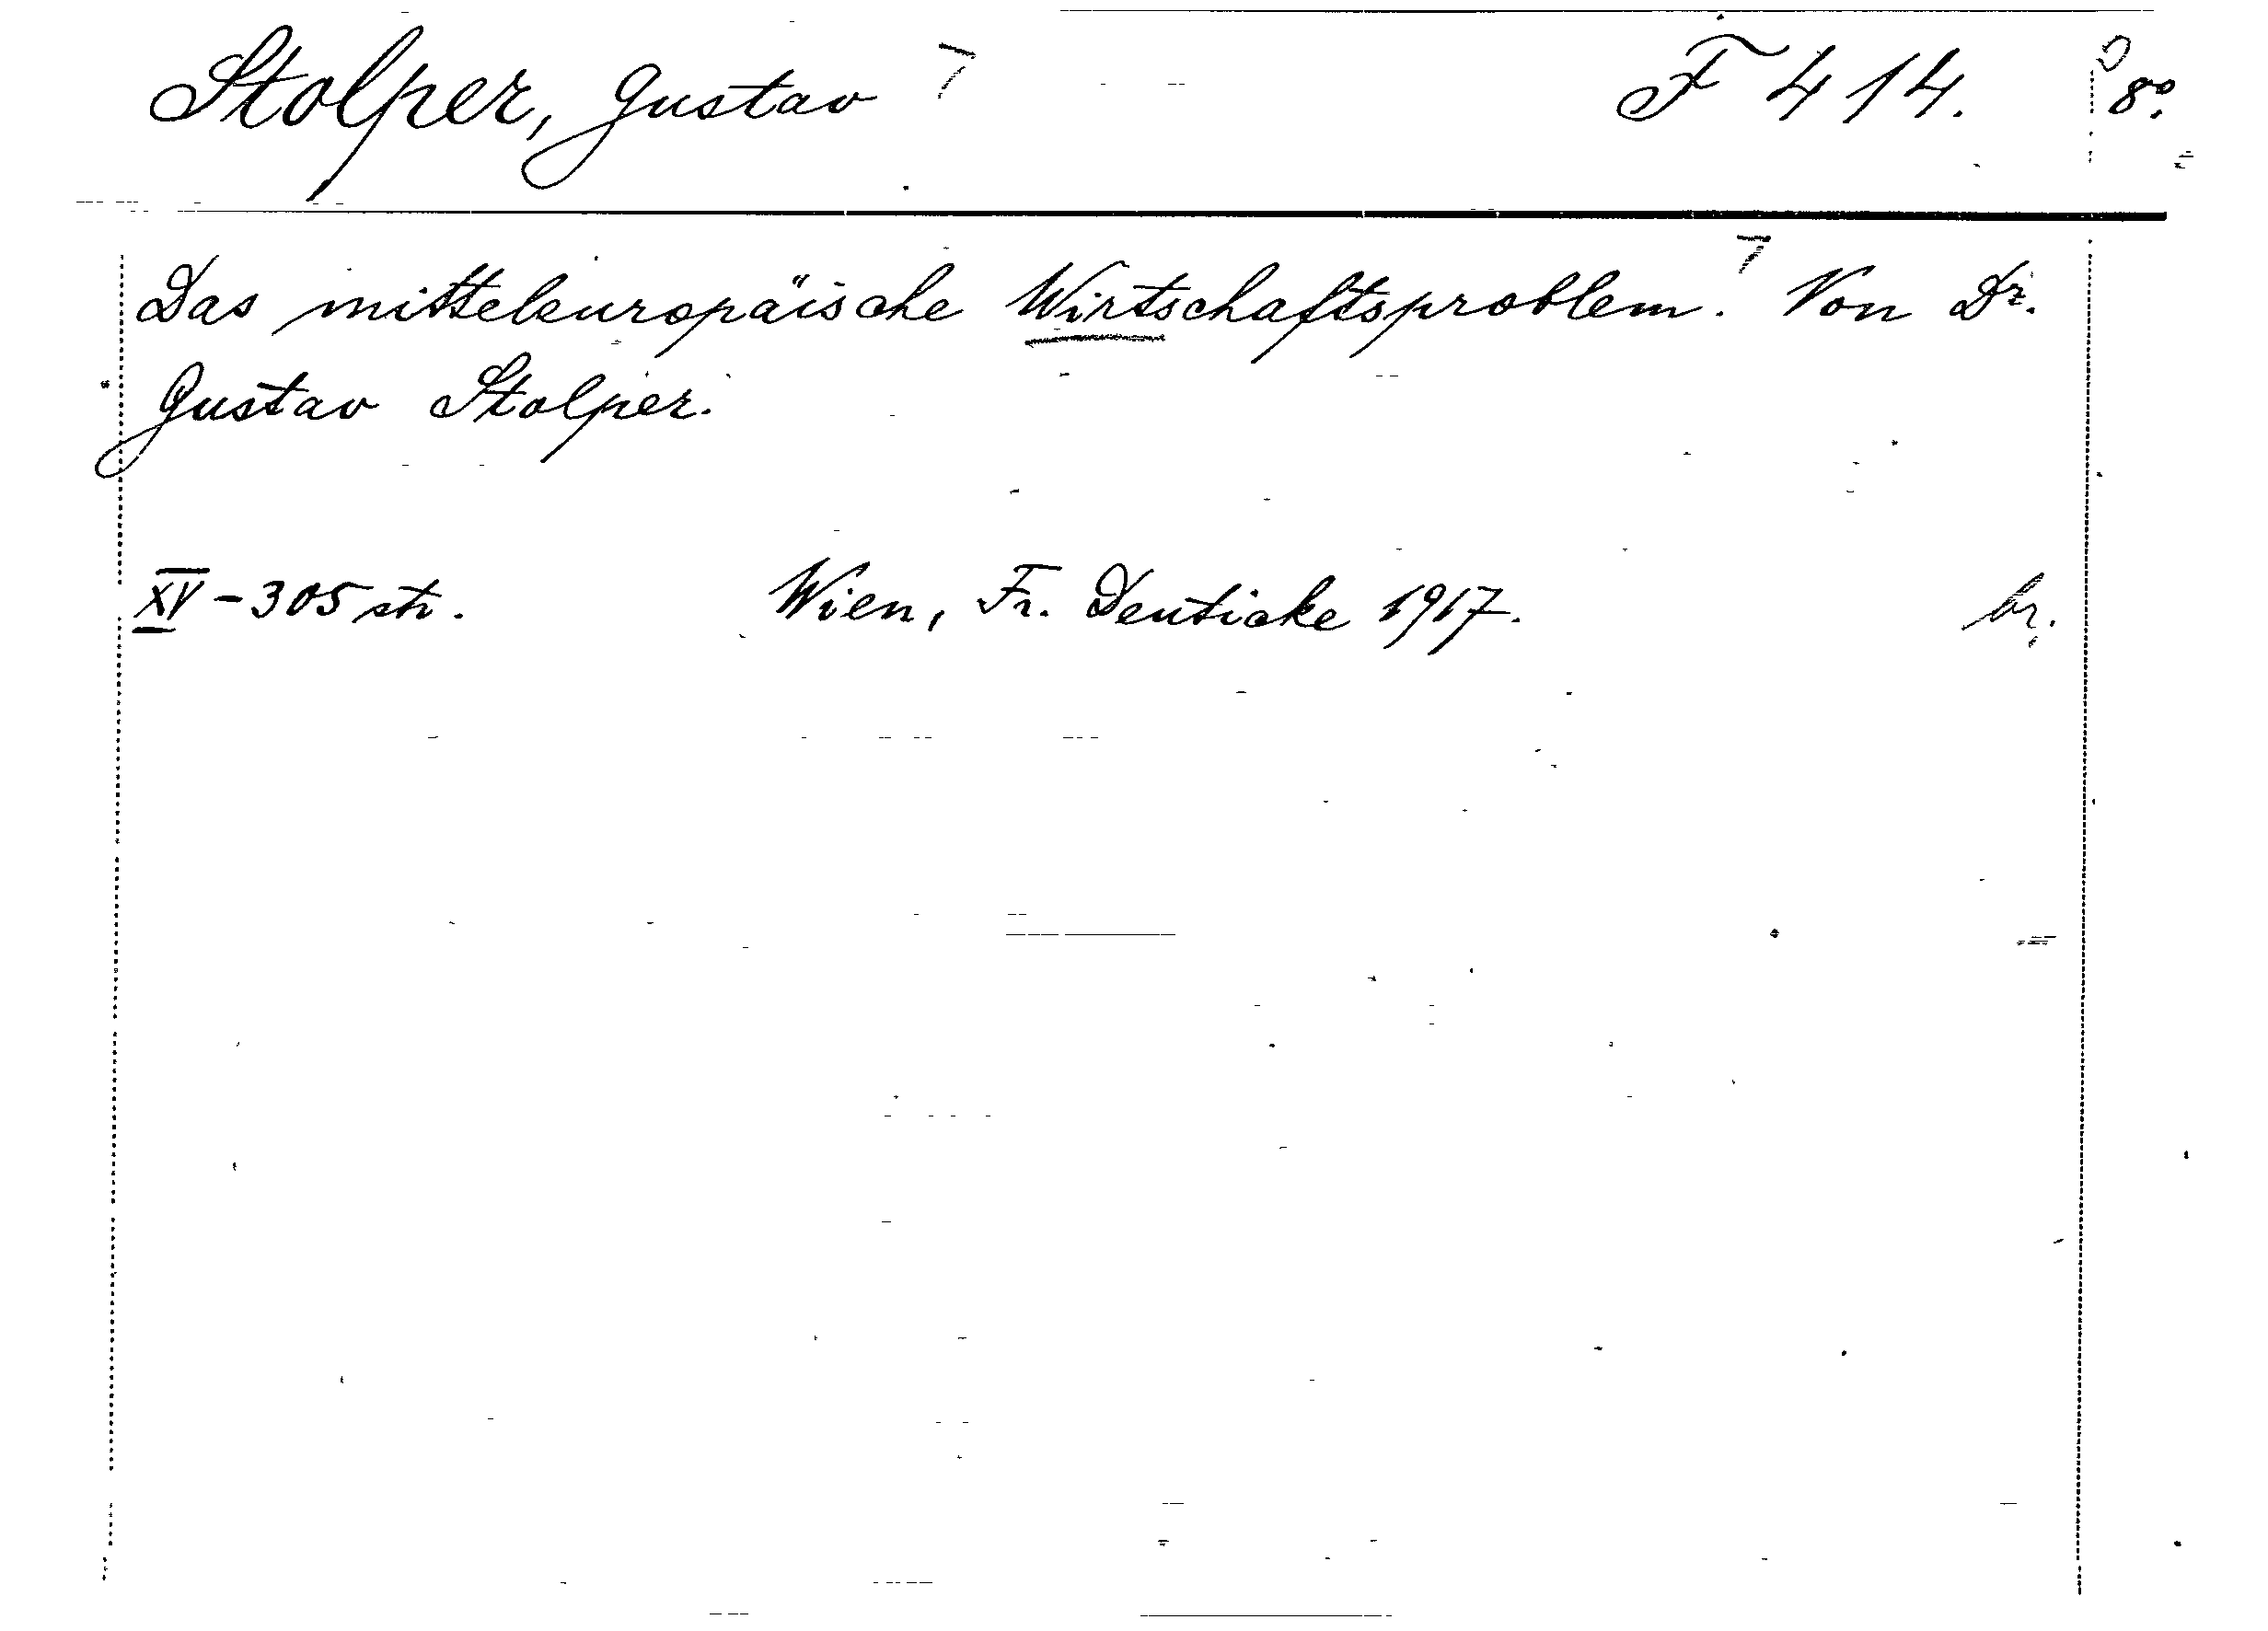 Stolper, Gustav F 414. 8°.
Das mitteleuropäische Wirtschaftsproblem. Von Dr.
Gustav Stolper.
XV - 305 str. Wien, Fr. Deuticke 1917. br.